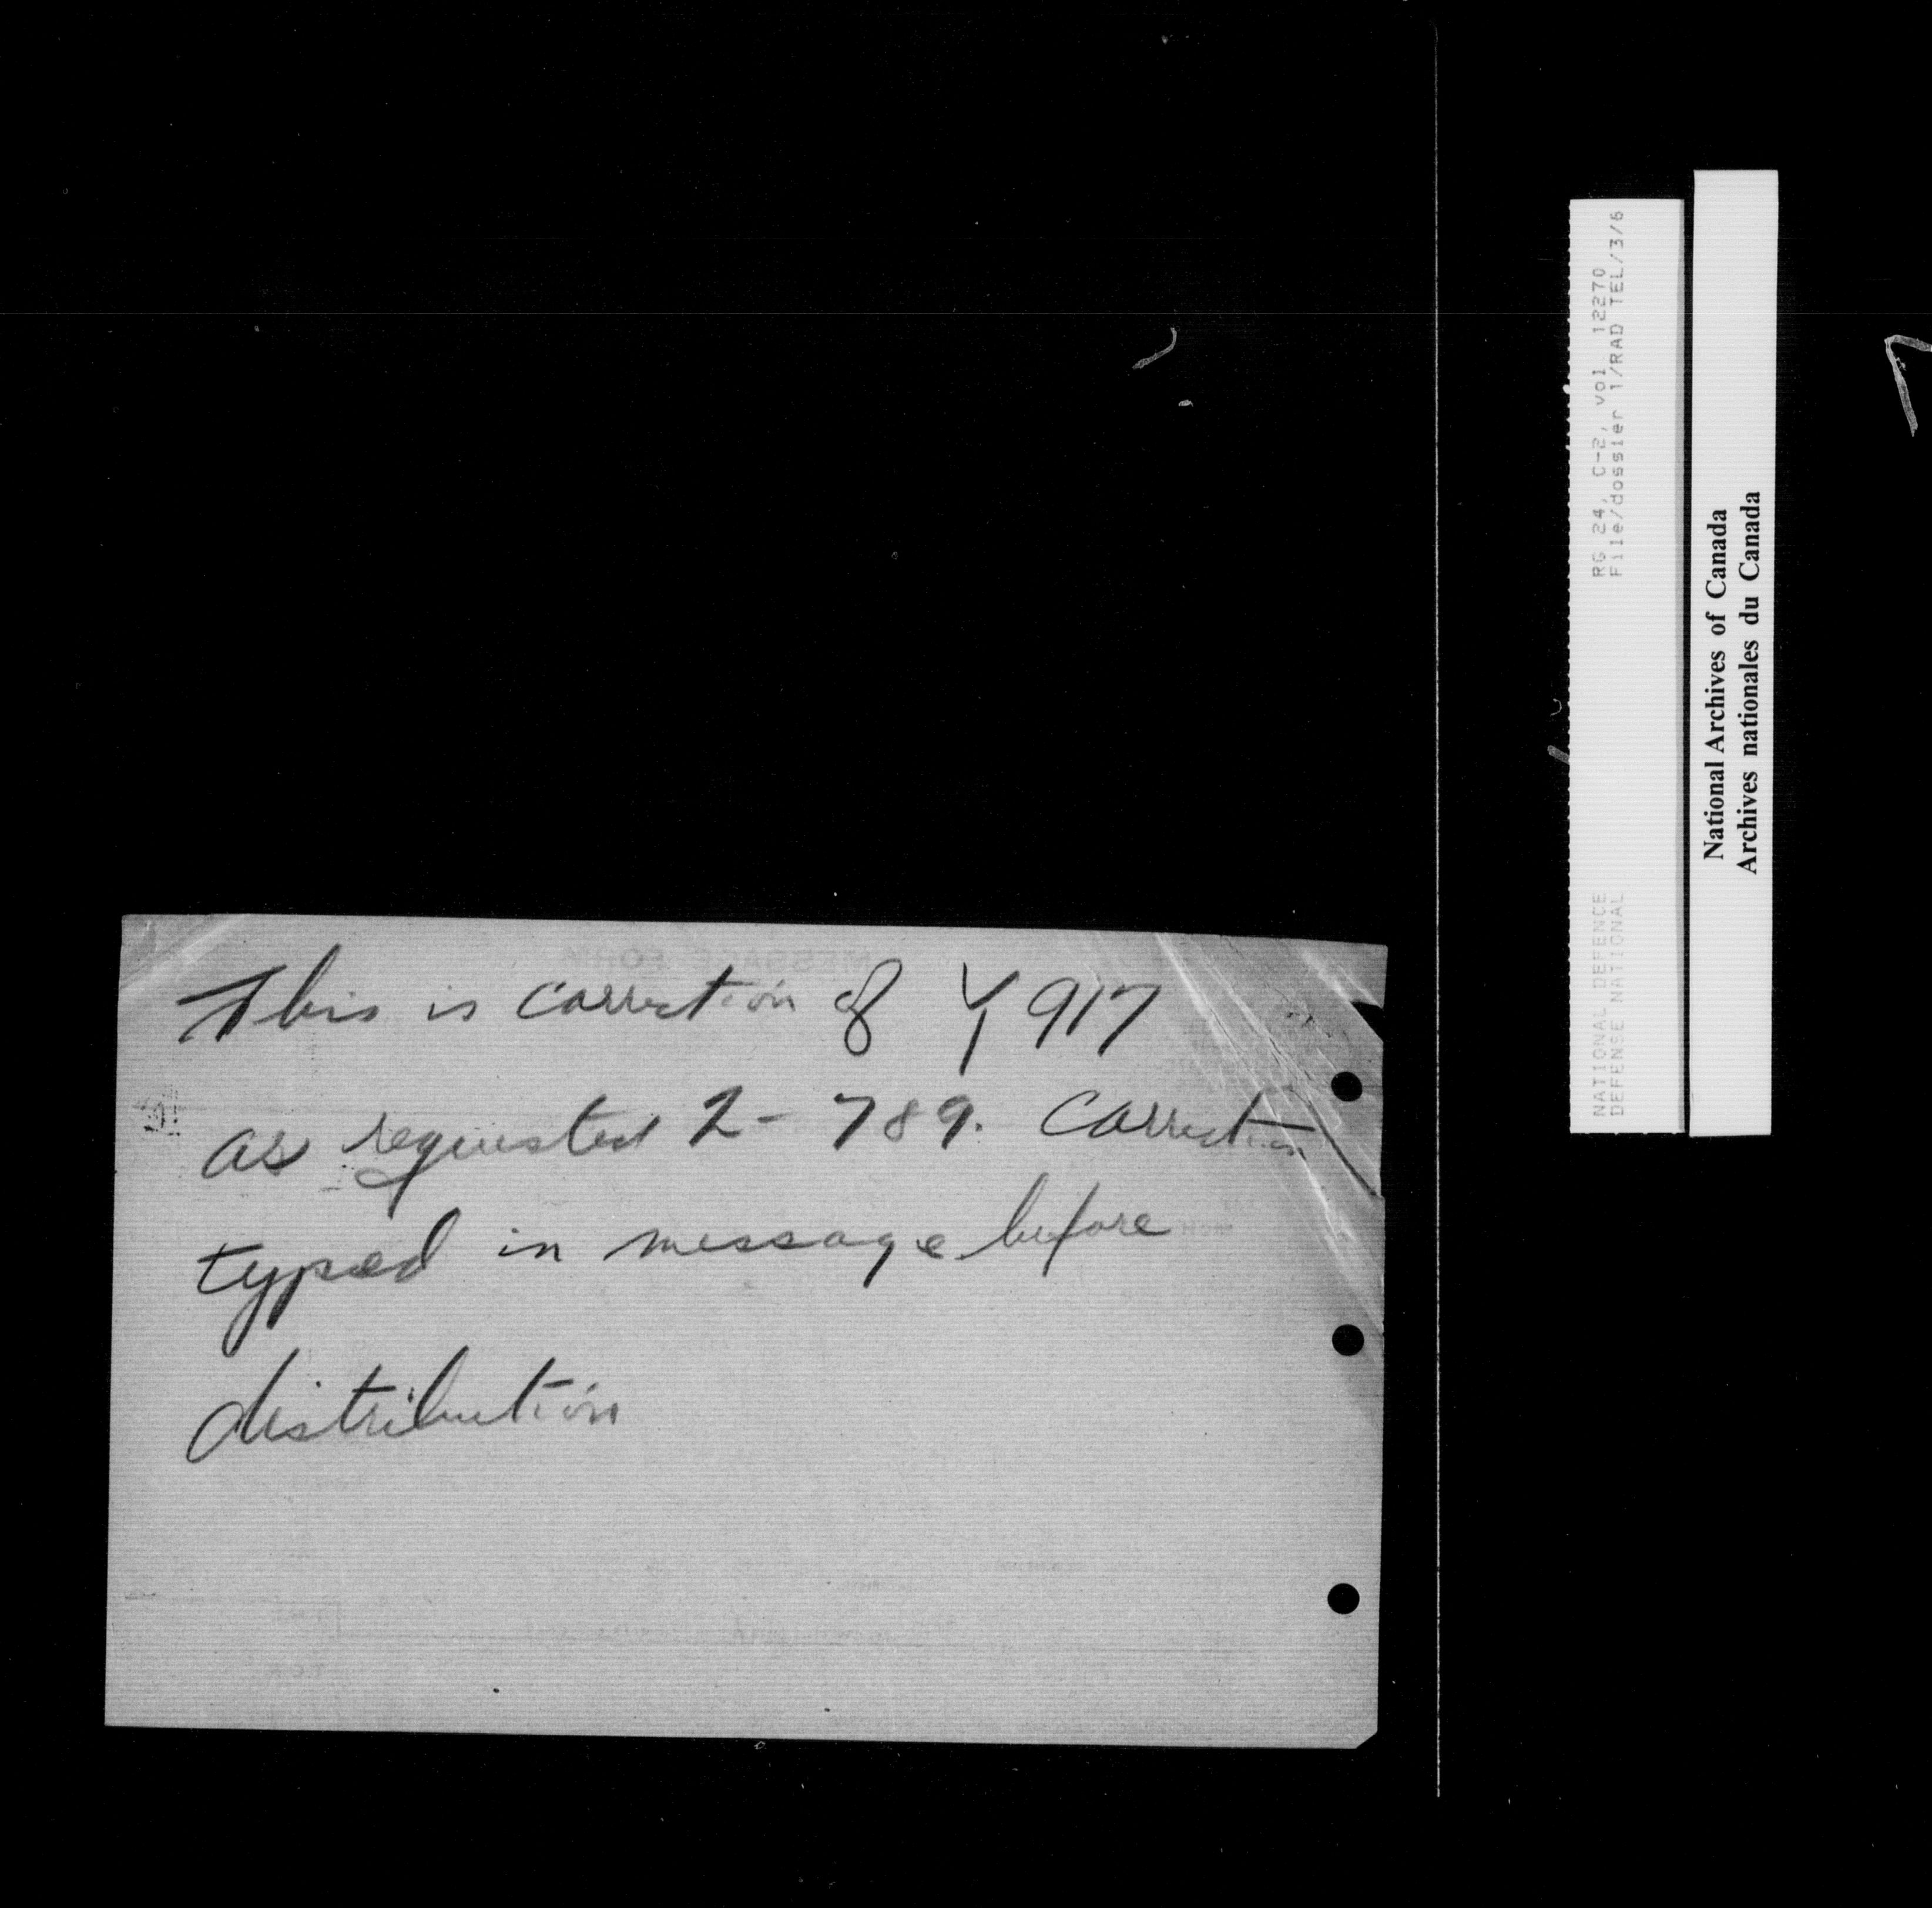 This is correction of Y 917
as requested 2-789. Correction
typed in message before
distribution
MESSAGE FORM
NATIONAL DEFENCE RG 24, C-2, vol. 12270
DEFENSE NATIONAL File/dossier 1/RAD TEL/3/6
National Archives of Canada
Archives nationales du Canada